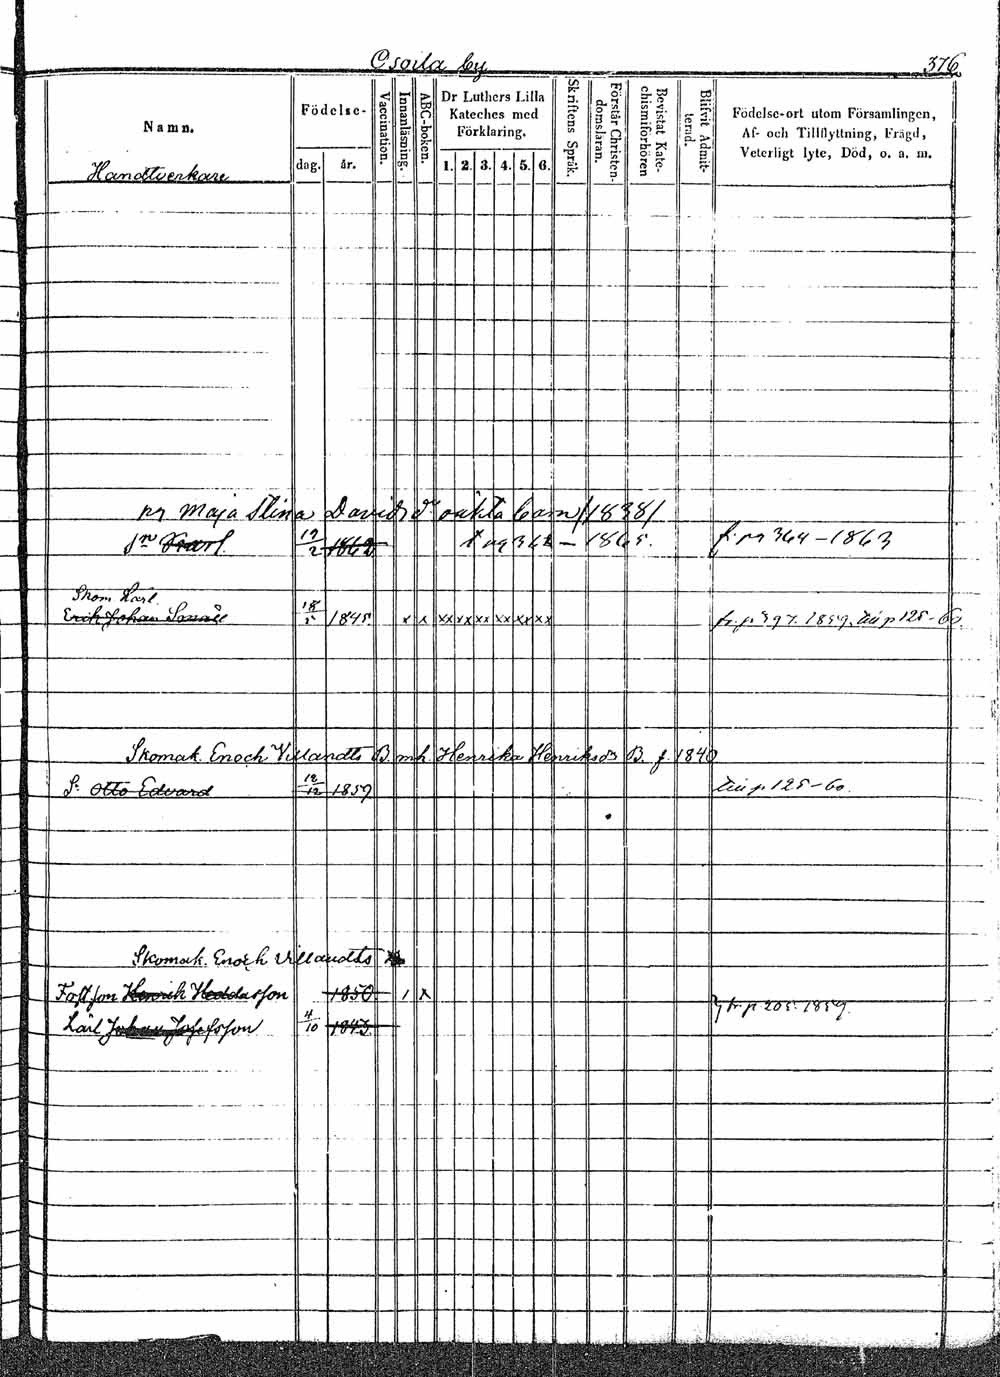 Osoila by 376
Namn.
Handtverkare
Födelse-
dag. år.
Vaccination.
Innanläsning.
ABC-boken.
Dr Luthers Lilla
Kateches med
Förklaring.
1. 2. 3. 4. 5. 6.
Skriftens Språk.
Förstår Christen-
domsläran.
Bevistat Kate-
chismiförhören
Blifvit Admit-
terad.
Födelse-ort utom Församlingen,
Af- och Tillflyttning, Frägd,
Veterligt lyte, Död, o. a. m.
Maja Stina Davids dr oäkta barn /1838/
sn Karl 19/2 1862 362 – 1865. fr. 364 – 1863
Skom. Lärl.
Erik Johan 18/5 1845. x x xx xx xx xx xx xx fr. p 397. 1859. till p 125-60.
Skomak. Enoch Villandts B. m h. Henrika Henriksdr B. f. 1840
S. Otto Edvard 12/12 1859 till p 125-60.
Skomak. Enoch Villandts
Fostson Henrik Heddasson 1850 / x
Lärl Johan Josefsson 4/10 1843. fr. p 205. 1859.